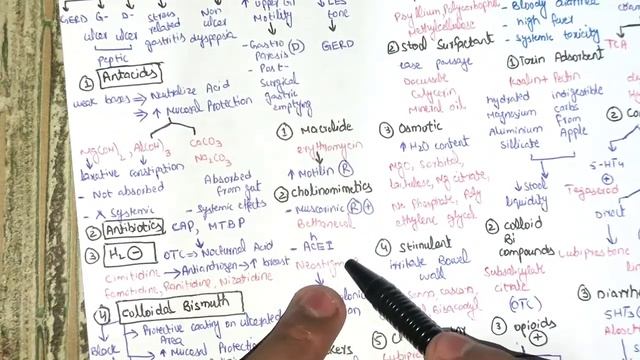 GERD G- D- Stress Non
ulcer ulcer related ulcer
gastritis dyspepsia
Peptic
① Antacids
weak bases ⇒ Neutralize Acid
⇒ ↑ Mucosal Protection
Mg(OH)2, Al(OH)3 CaCO3
Na2CO3
laxative constipation
- Not absorbed
Absorbed
from gut
- Systemic effects
- X Systemic
② Antibiotics CAP, MTBP
③ H2 ⊖ OTC ⇒ Nocturnal Acid
Cimitidine → Antiandrogen → ↑ breast
Famotidine, Ranitidine, Nizatidine
④ Colloidal Bismuth
Block
Protective coating on ulcerated
Area
↑ Mucosal
↑ Upper GI
Motility
- Gastro
Paresis (D)
- Post-
Surgical
gastric
emptying
↓LES
tone
GERD
① Macrolide
erythromycin
↑ Motilin Ⓡ
② Cholinomimetics
- Muscarinic Ⓡ +
Bethanecol
- AChEI
Psyllium, Polycarbophil
Methylcellulose
② Stool Surfactant
ease passage
Docusate
Glycerin
Mineral oil
③ Osmotic
↑ H2O content
MgO, Sorbitol,
lactulose, Mg citrate,
Na Phosphate, Poly
ethylene glycol
④ Stimulant
irritate Bowel
wall
Senna, cascara,
Bisacodyl
⑤
- Bloody diarrhea
- high fever
- Systemic toxicity
① Toxin Adsorbent
Kaolin + Pectin
hydrated
Magnesium
Aluminium
Silicate
indigestible
carbs
from
Apple
↓ Stool
liquidity
② Colloid
Bi
compounds
Subsalicylate
citrate
(OTC)
③ opioids
TCA
5-HT4
+
Tegaserod
Direct
Lubiprostone
③ Diarrhea
5HT3